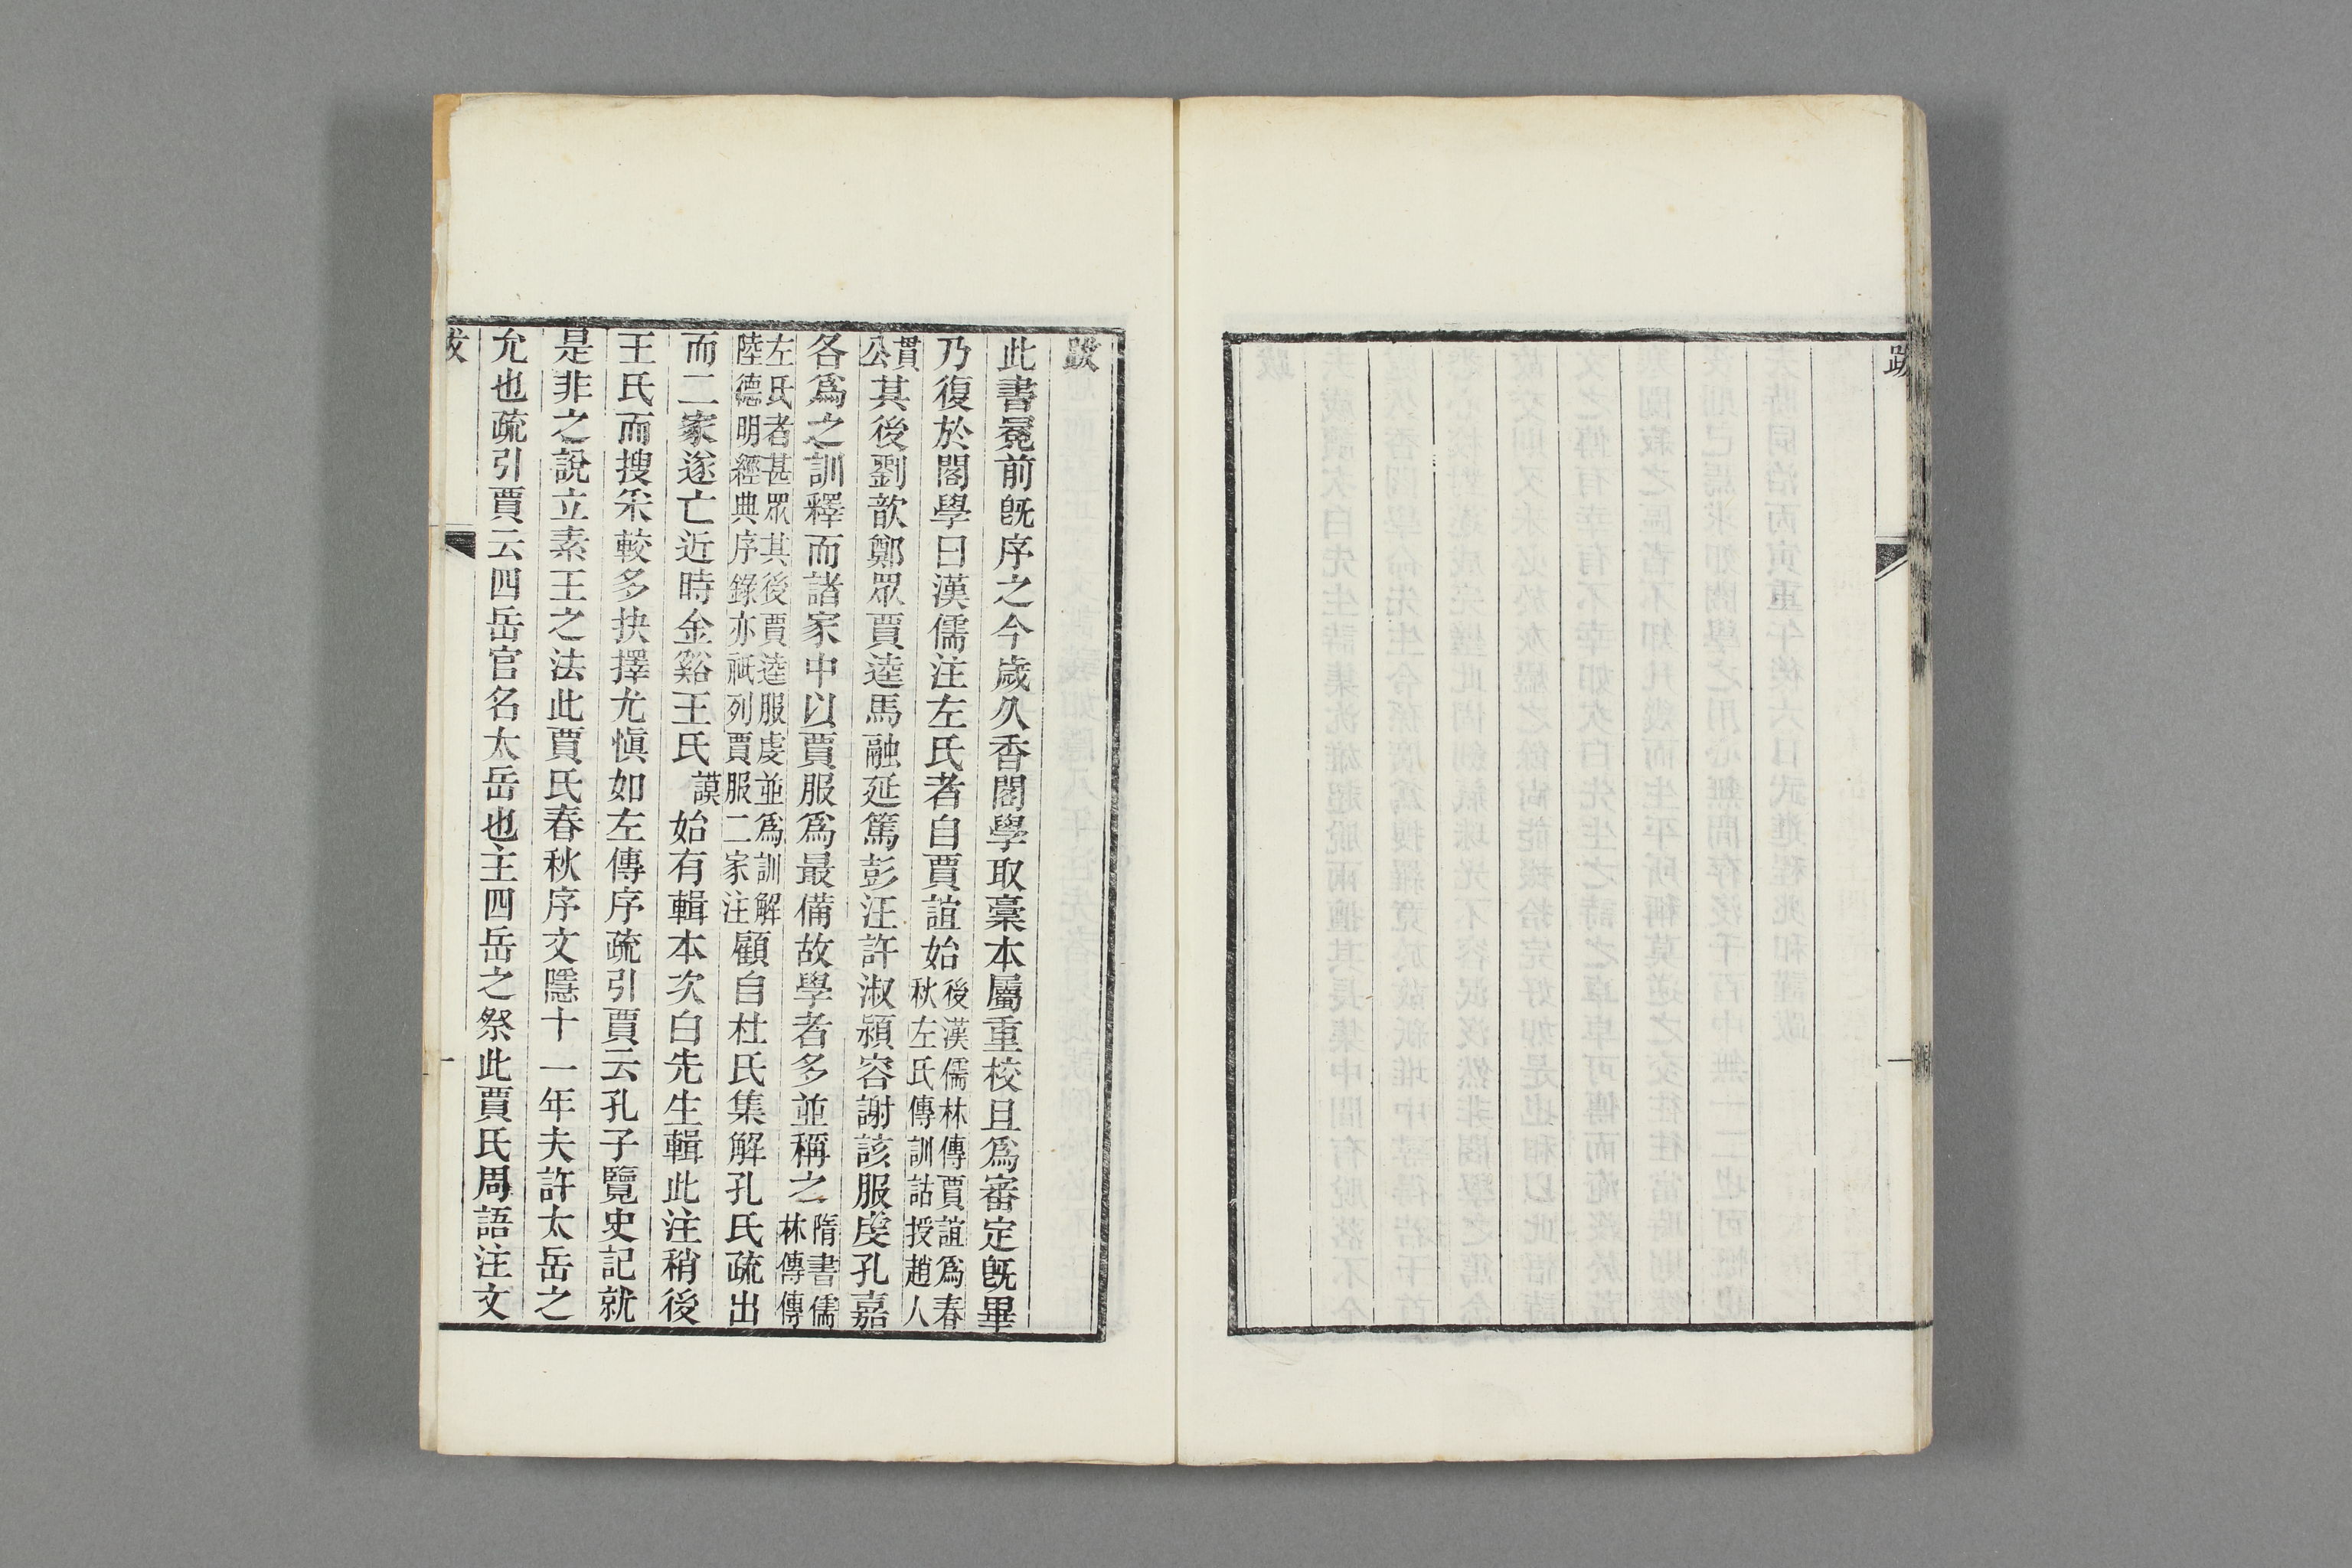 跋
跋
此書冕前既序之今歲久香閣學取稾本屬重校且爲審定既畢
乃復於閣學曰漢儒注左氏者自賈誼始後漢儒林傳賈誼爲春秋左氏傳訓詁授趙人
貫公其後劉歆鄭眾賈逵馬融延篤彭汪許淑潁容謝該服虔孔嘉
各爲之訓釋而諸家中以賈服爲最備故學者多並稱之隋書儒林傳傳
左氏者甚眾其後賈逵服虔並爲訓解陸德明經典序錄亦祇列賈服二家注顧自杜氏集解孔氏疏出
而二家遂亡近時金谿王氏謨始有輯本次白先生輯此注稍後
王氏而搜采較多抉擇尤慎如左傳序疏引賈云孔子覽史記就
是非之說立素王之法此賈氏春秋序文隱十一年夫許太岳之
允也疏引賈云四岳官名太岳也主四岳之祭此賈氏周語注文
跋
一